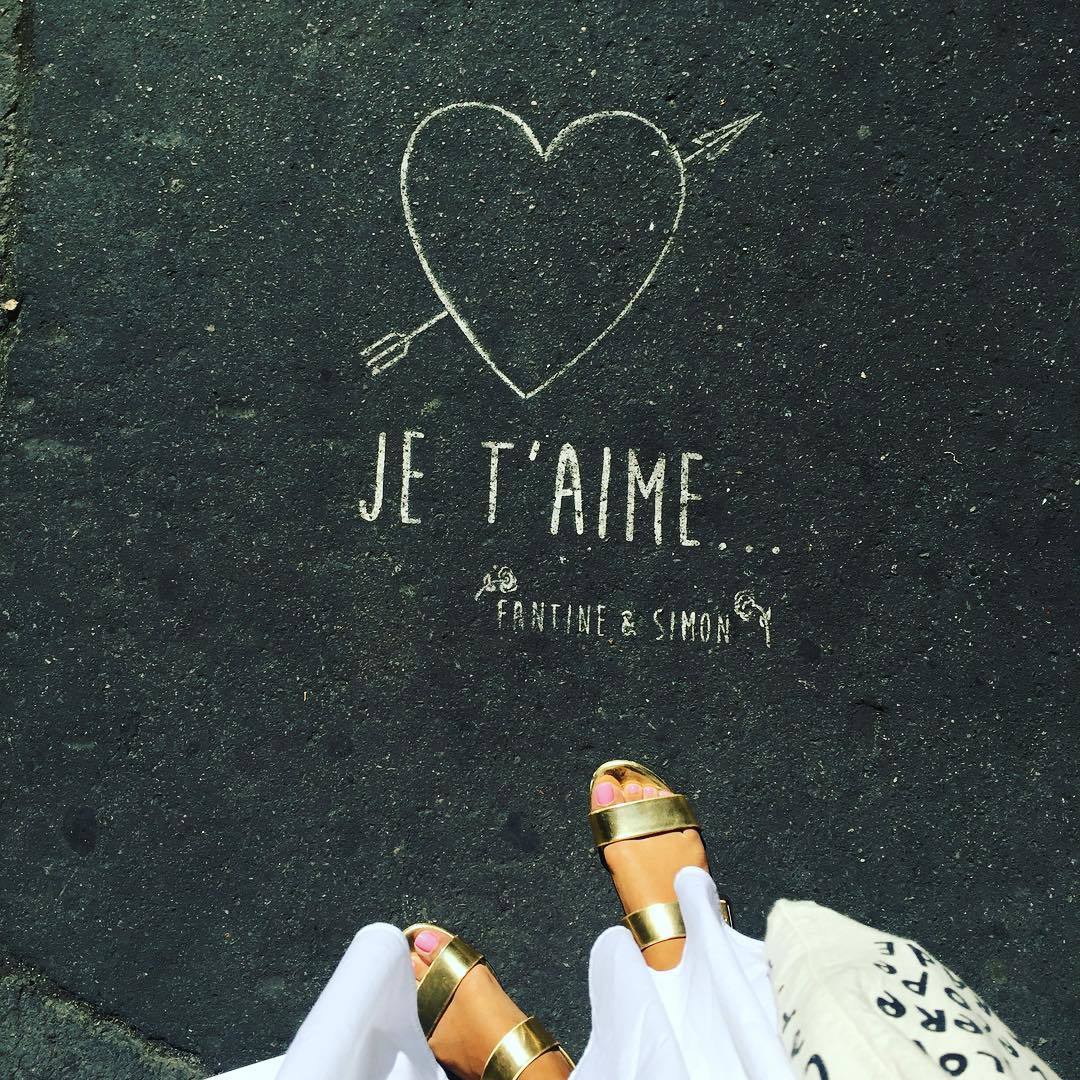 JE T'AIME...
FANTINE & SIMON